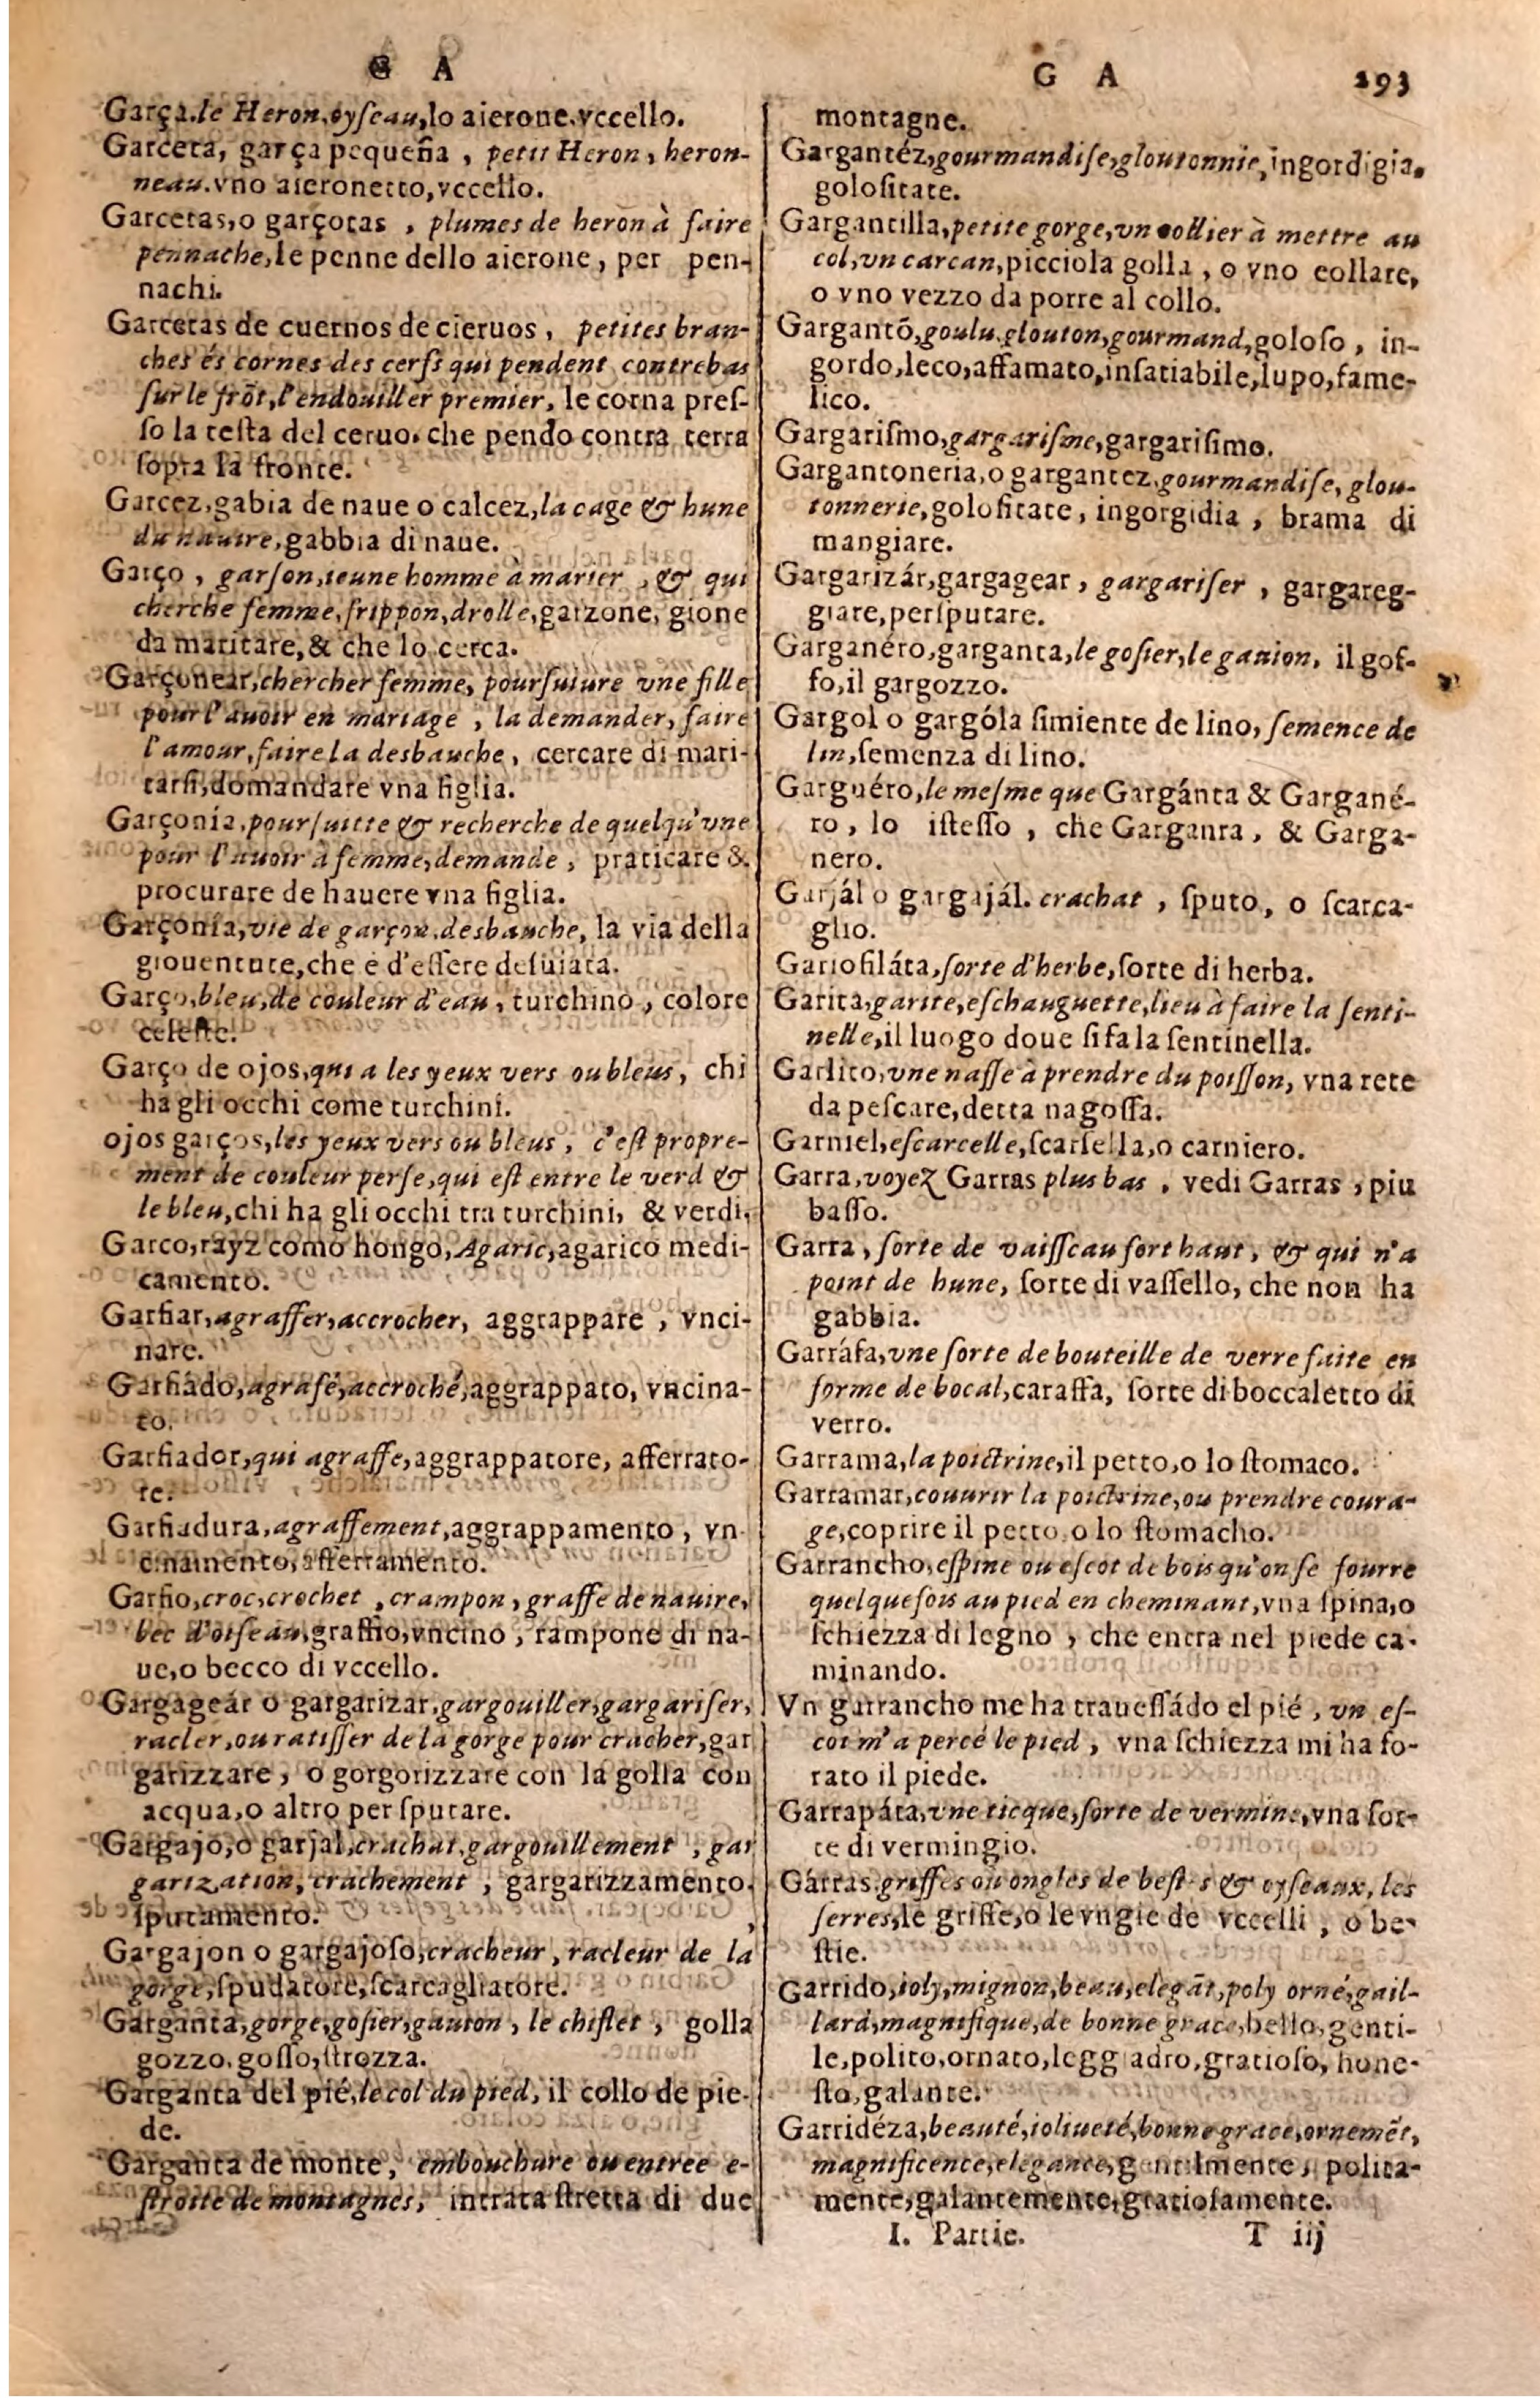 G A
Garça, le Heron, oyſeau, lo aierone, vccello.
Garceta, garça pequeña , petit Heron, heron-
neau. vno aieronetto, vccello.
Garcetas, o garçotas , plumes de heron à faire
pennache, le penne dello aierone, per pen-
nachi.
Garcetas de cuernos de cieruos , petites bran-
ches és cornes des cerfs qui pendent contrebas
ſur le frõt, l'endouiller premier, le corna preſ-
ſo la teſta del ceruo. che pendo contra terra
ſopra la fronte.
Garcez, gabia de naue o calcez, la cage & hune
du nauire, gabbia di naue.
Garço , garſon, ieune homme à marier , & qui
cherche femme, frippon, drolle, garzone, gione
da maritare, & che lo cerca.
Garçonear, chercher femme, pourſuiure vne fille
pour l'auoir en mariage , la demander, faire
l'amour, faire la desbauche , cercare di mari-
tarſi, domandare vna figlia.
Garçonía, pourſuitte & recherche de quelqu'vne
pour l'auoir à femme, demande , praticare &
procurare de hauere vna figlia.
Garçonía, vie de garçon, desbauche, la via della
giouentute, che e d'eſſere deſuiata.
Garço, bleu, de couleur d'eau , turchino , colore
celeſte.
Garço de ojos, qui a les yeux vers ou bleus , chi
ha gli occhi come turchini.
ojos garços, les yeux vers ou bleus , c'eſt propre-
ment de couleur perſe, qui eſt entre le verd &
le bleu, chi ha gli occhi tra turchini, & verdi.
Garco, rayz como hongo, Agaric, agarico medi-
camento.
Garfiar, agraffer, accrocher, aggrappare , vnci-
nare.
Garfiádo, agrafé, accroché, aggrappato, vncina-
to.
Garfiador, qui agraffe, aggrappatore, afferrato-
re.
Garfiadura, agraffement, aggrappamento , vn
cinamento, afferramento.
Garfio, croc, crochet , crampon, graffe de nauire,
bec d'oiſeau, graffio, vncino , rampone di na-
ue, o becco di vccello.
Gargageár o gargarizar, gargouiller, gargariſer,
racler, ou ratiſſer de la gorge pour cracher, gar
garizzare , o gorgorizzare con la golla con
acqua, o altro per ſputare.
Gargajo, o garjal, crachat, gargouillement , gar
garization, crachement , gargarizzamento.
ſputamento.
Gargajon o gargajoſo, cracheur, racleur de la
gorge, ſpudatore, ſcarcagliatore.
Garganta, gorge, goſier, gauion , le chiflet , golla
gozzo. goſſo, ſtrozza.
Garganta del pié, le col du pied, il collo de pie-
de.
Garganta de monte, embouchure ou entree e-
ſtroite de montagnes, intrata ſtretta di due
G A 293
montagne.
Gargantéz, gourmandiſe, gloutonnie, ingordigia.
goloſitate.
Gargantilla, petite gorge, vn collier à mettre au
col, vn carcan, picciola golla , o vno collare,
o vno vezzo da porre al collo.
Gargantõ, goulu, glouton, gourmand, goloſo , in-
gordo, leco, affamato, inſatiabile, lupo, fame-
lico.
Gargariſmo, gargariſme, gargariſimo.
Gargantoneria, o gargantez, gourmandiſe, glou-
tonnerie, goloſitate, ingorgidia , brama di
mangiare.
Gargarizár, gargagear , gargariſer , gargareg-
giare, perſputare.
Garganéro, garganta, le goſier, le gauion, il goſ-
ſo, il gargozzo.
Gargol o gargóla ſimiente de lino, ſemence de
lin, ſemenza di lino.
Garguéro, le meſme que Gargánta & Gargané-
ro , lo iſteſſo , che Garganra , & Garga-
nero.
Garjál o gargajál. crachat , ſputo, o ſcarca-
glio.
Gariofiláta, ſorte d'herbe, ſorte di herba.
Garita, garite, eſchauguette, lieu à faire la ſenti-
nelle, il luogo doue ſi fa la ſentinella.
Garlito, vne naſſe à prendre du poiſſon, vna rete
da peſcare, detta nagoſſa.
Garniel, eſcarcelle, ſcarſella, o carniero.
Garra, voyez Garras plus bas , vedi Garras , piu
baſſo.
Garra , ſorte de vaiſſeau fort haut , & qui n'a
point de hune, ſorte di vaſſello, che non ha
gabbia.
Garráfa, vne ſorte de bouteille de verre faite en
forme de bocal, caraffa, ſorte di boccaletto di
verro.
Garrama, la poictrine, il petto, o lo ſtomaco.
Garramar, couurir la poictrine, ou prendre coura-
ge, coprire il petto, o lo ſtomacho.
Garrancho, eſpine ou eſcot de bois qu'on ſe fourre
quelquefois au pied en cheminant, vna ſpina, o
ſchiezza di legno , che entra nel piede ca-
minando.
Vn garrancho me ha traueſſádo el pié , vn eſ-
cot m'a percé le pied , vna ſchiezza mi ha fo-
rato il piede.
Garrapáta, vne ticque, ſorte de vermine, vna ſor-
te di vermingio.
Gárras. griffes ou ongles de beſtes & oyſeaux, les
ſerres, le griffe, o le vngie de vccelli , o be-
ſtie.
Garrido, ioly, mignon, beau, elegãt, poly orné, gail-
lard, magnifique, de bonne grace, bello, genti-
le, polito, ornato, leggiadro, gratioſo, hone-
ſto, galante.
Garridéza, beauté, ioliueté, bonne grace, ornemẽt,
magnificence, elegance, gentilmente, polita-
mente, galantemente, gratioſamente.
I. Partie. T iij